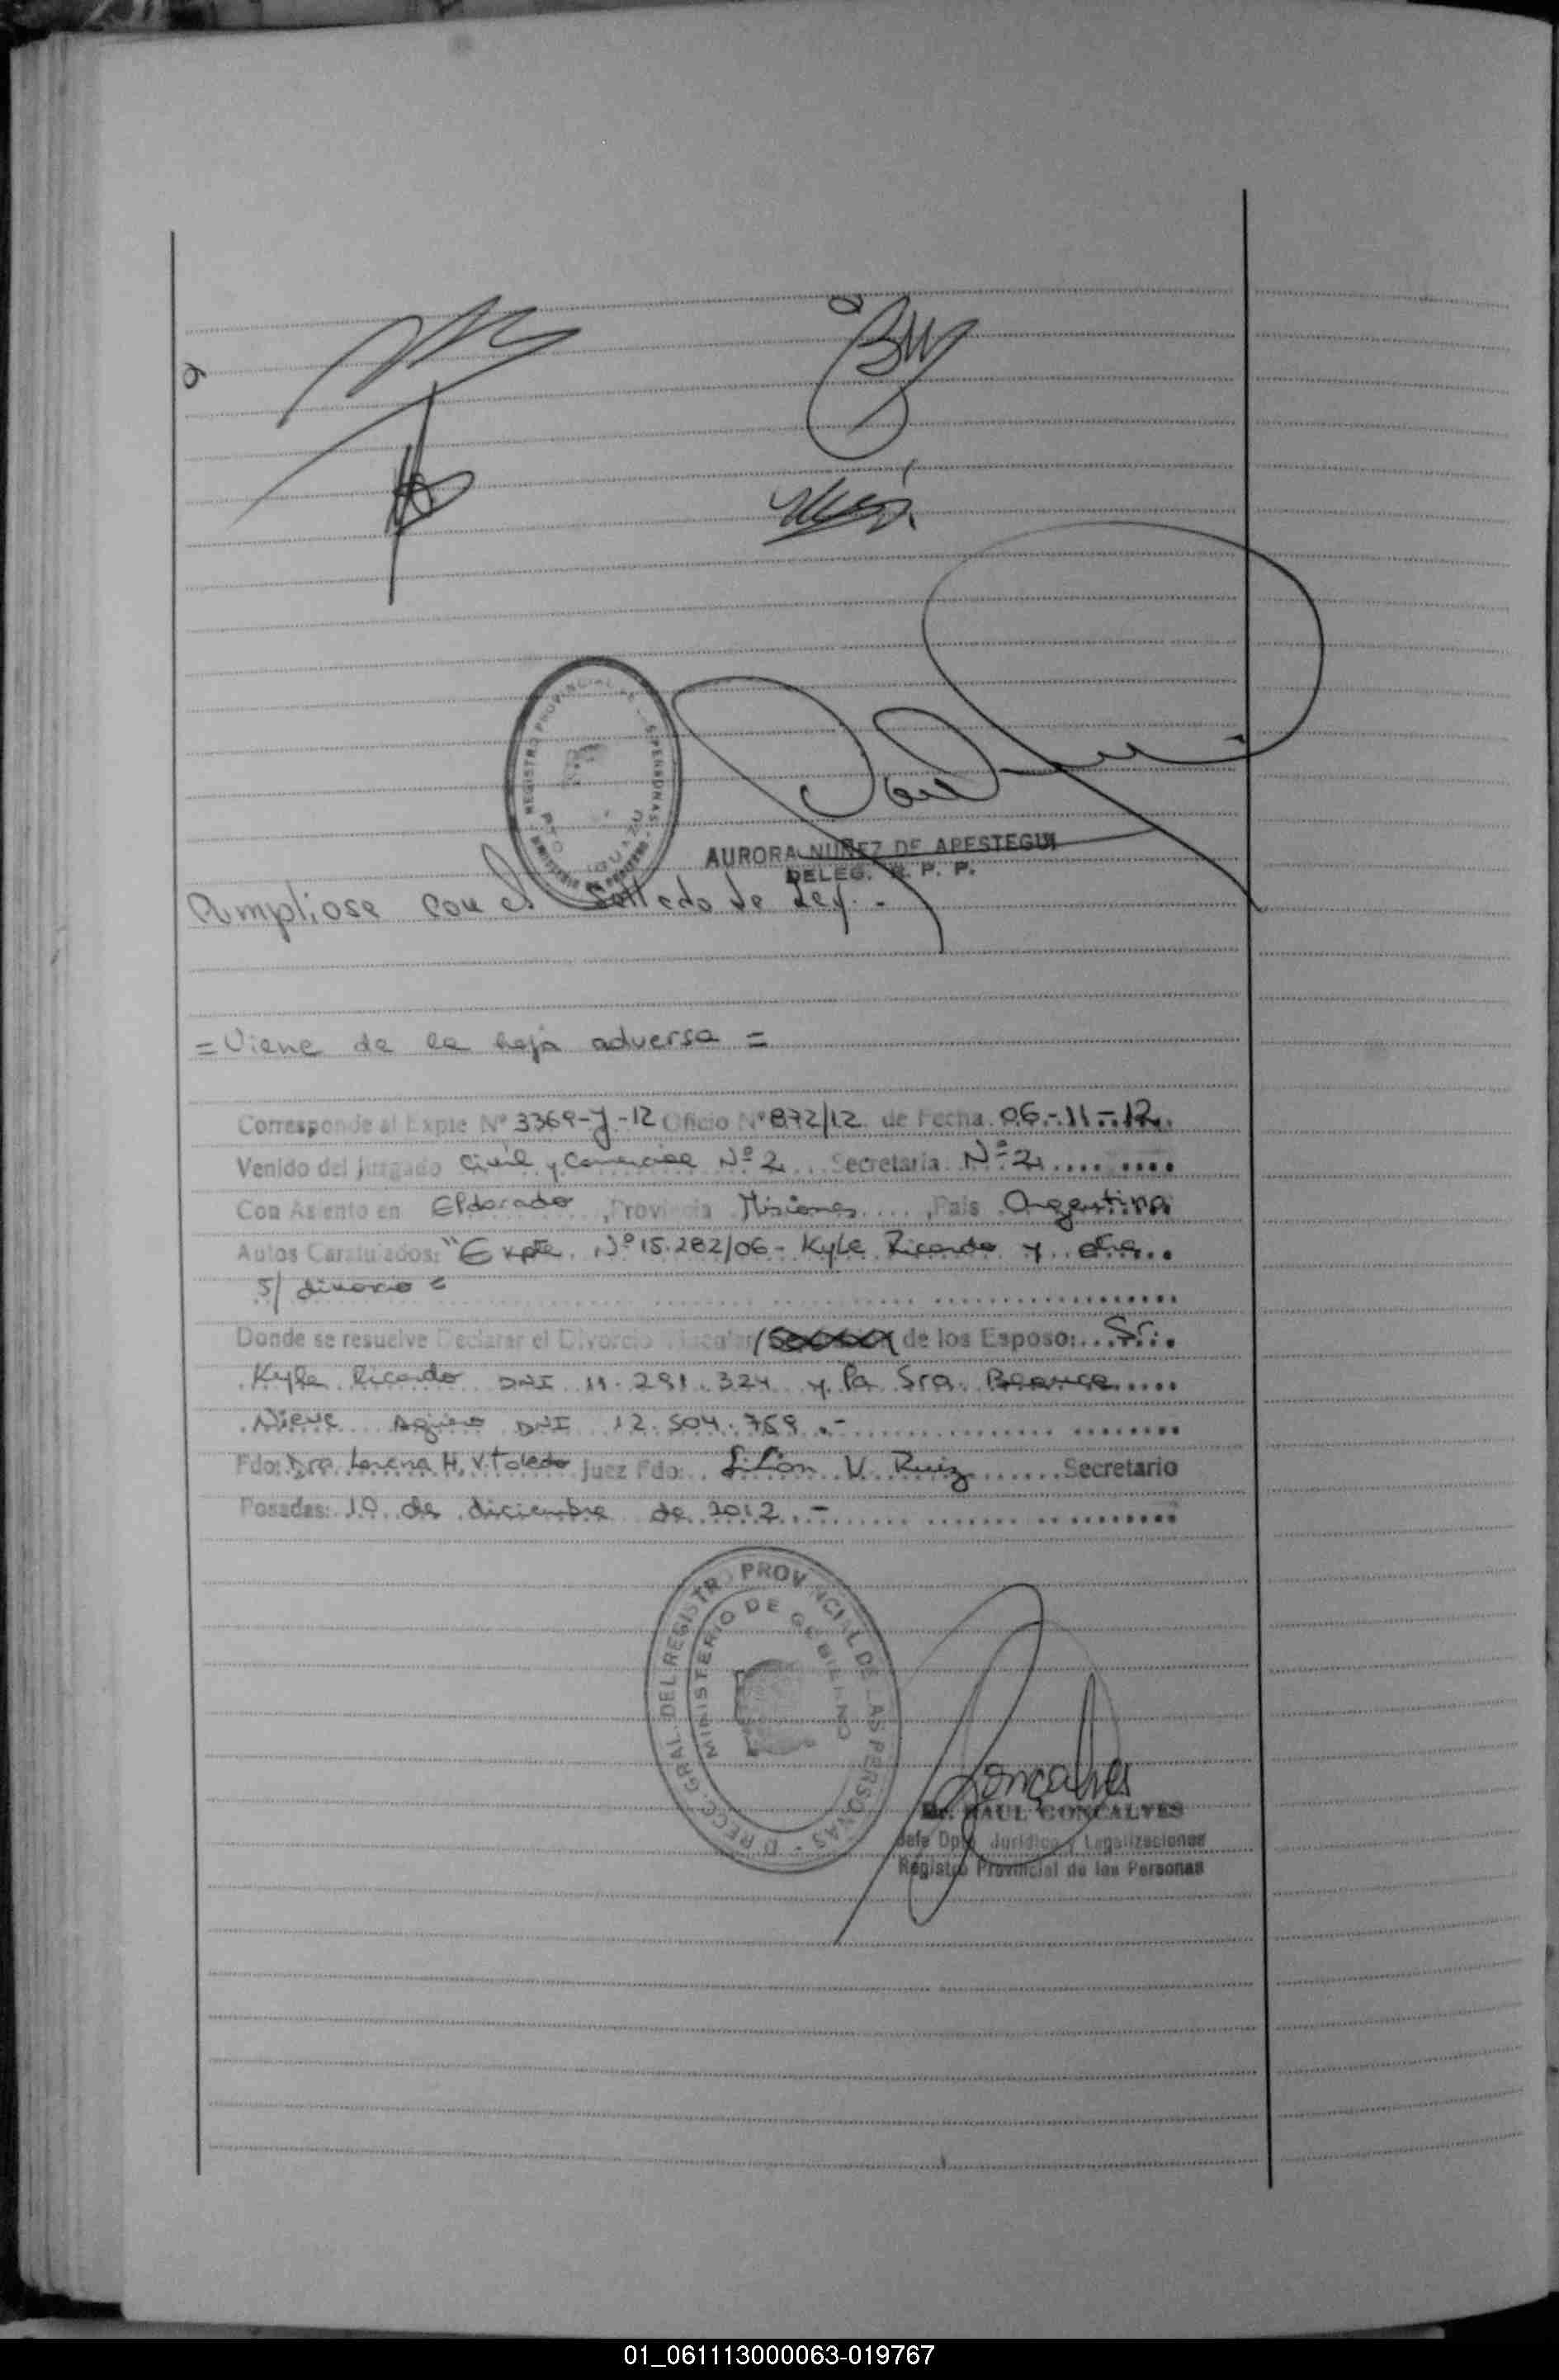 REGISTRO PROVINCIAL DE PERSONAS
PTO IGUAZU
AURORA NUÑEZ DE APESTEGUI
DELEG. R. P. P.
Cumpliose con el Sellado de Ley.-
=Viene de la hoja adversa =
Corresponde al Expte Nº 3369-J-12 Oficio Nº 872/12 de Fecha 06-11-12.
Venido del Juzgado Civil y Comercial Nº 2 Secretaría Nº 2
Con Asiento en Eldorado, Provincia Misiones, País Argentina
Autos Caratulados: "Expte. Nº 15.282/06 - Kyle Ricardo y otra
S/ divorcio =
Donde se resuelve Declarar el Divorcio Vincular / de los Esposo: Sr.
Kyle Ricardo DNI 11.281.324 y la Sra.
Nieve Agüero DNI 12.504.759.-
Fdo: Dra. Lorena H. V. Toledo Juez Fdo: V. Ruiz Secretario
Posadas: 10 de diciembre de 2012 -
DIRECC. GRAL. DEL REGISTRO PROVINCIAL DE LAS PERSONAS
MINISTERIO DE GOBIERNO
Goncalves
Dr. RAUL GONCALVES
Jefe Dpto. Jurídico y Legalizaciones
Registro Provincial de las Personas
01_061113000063-019767